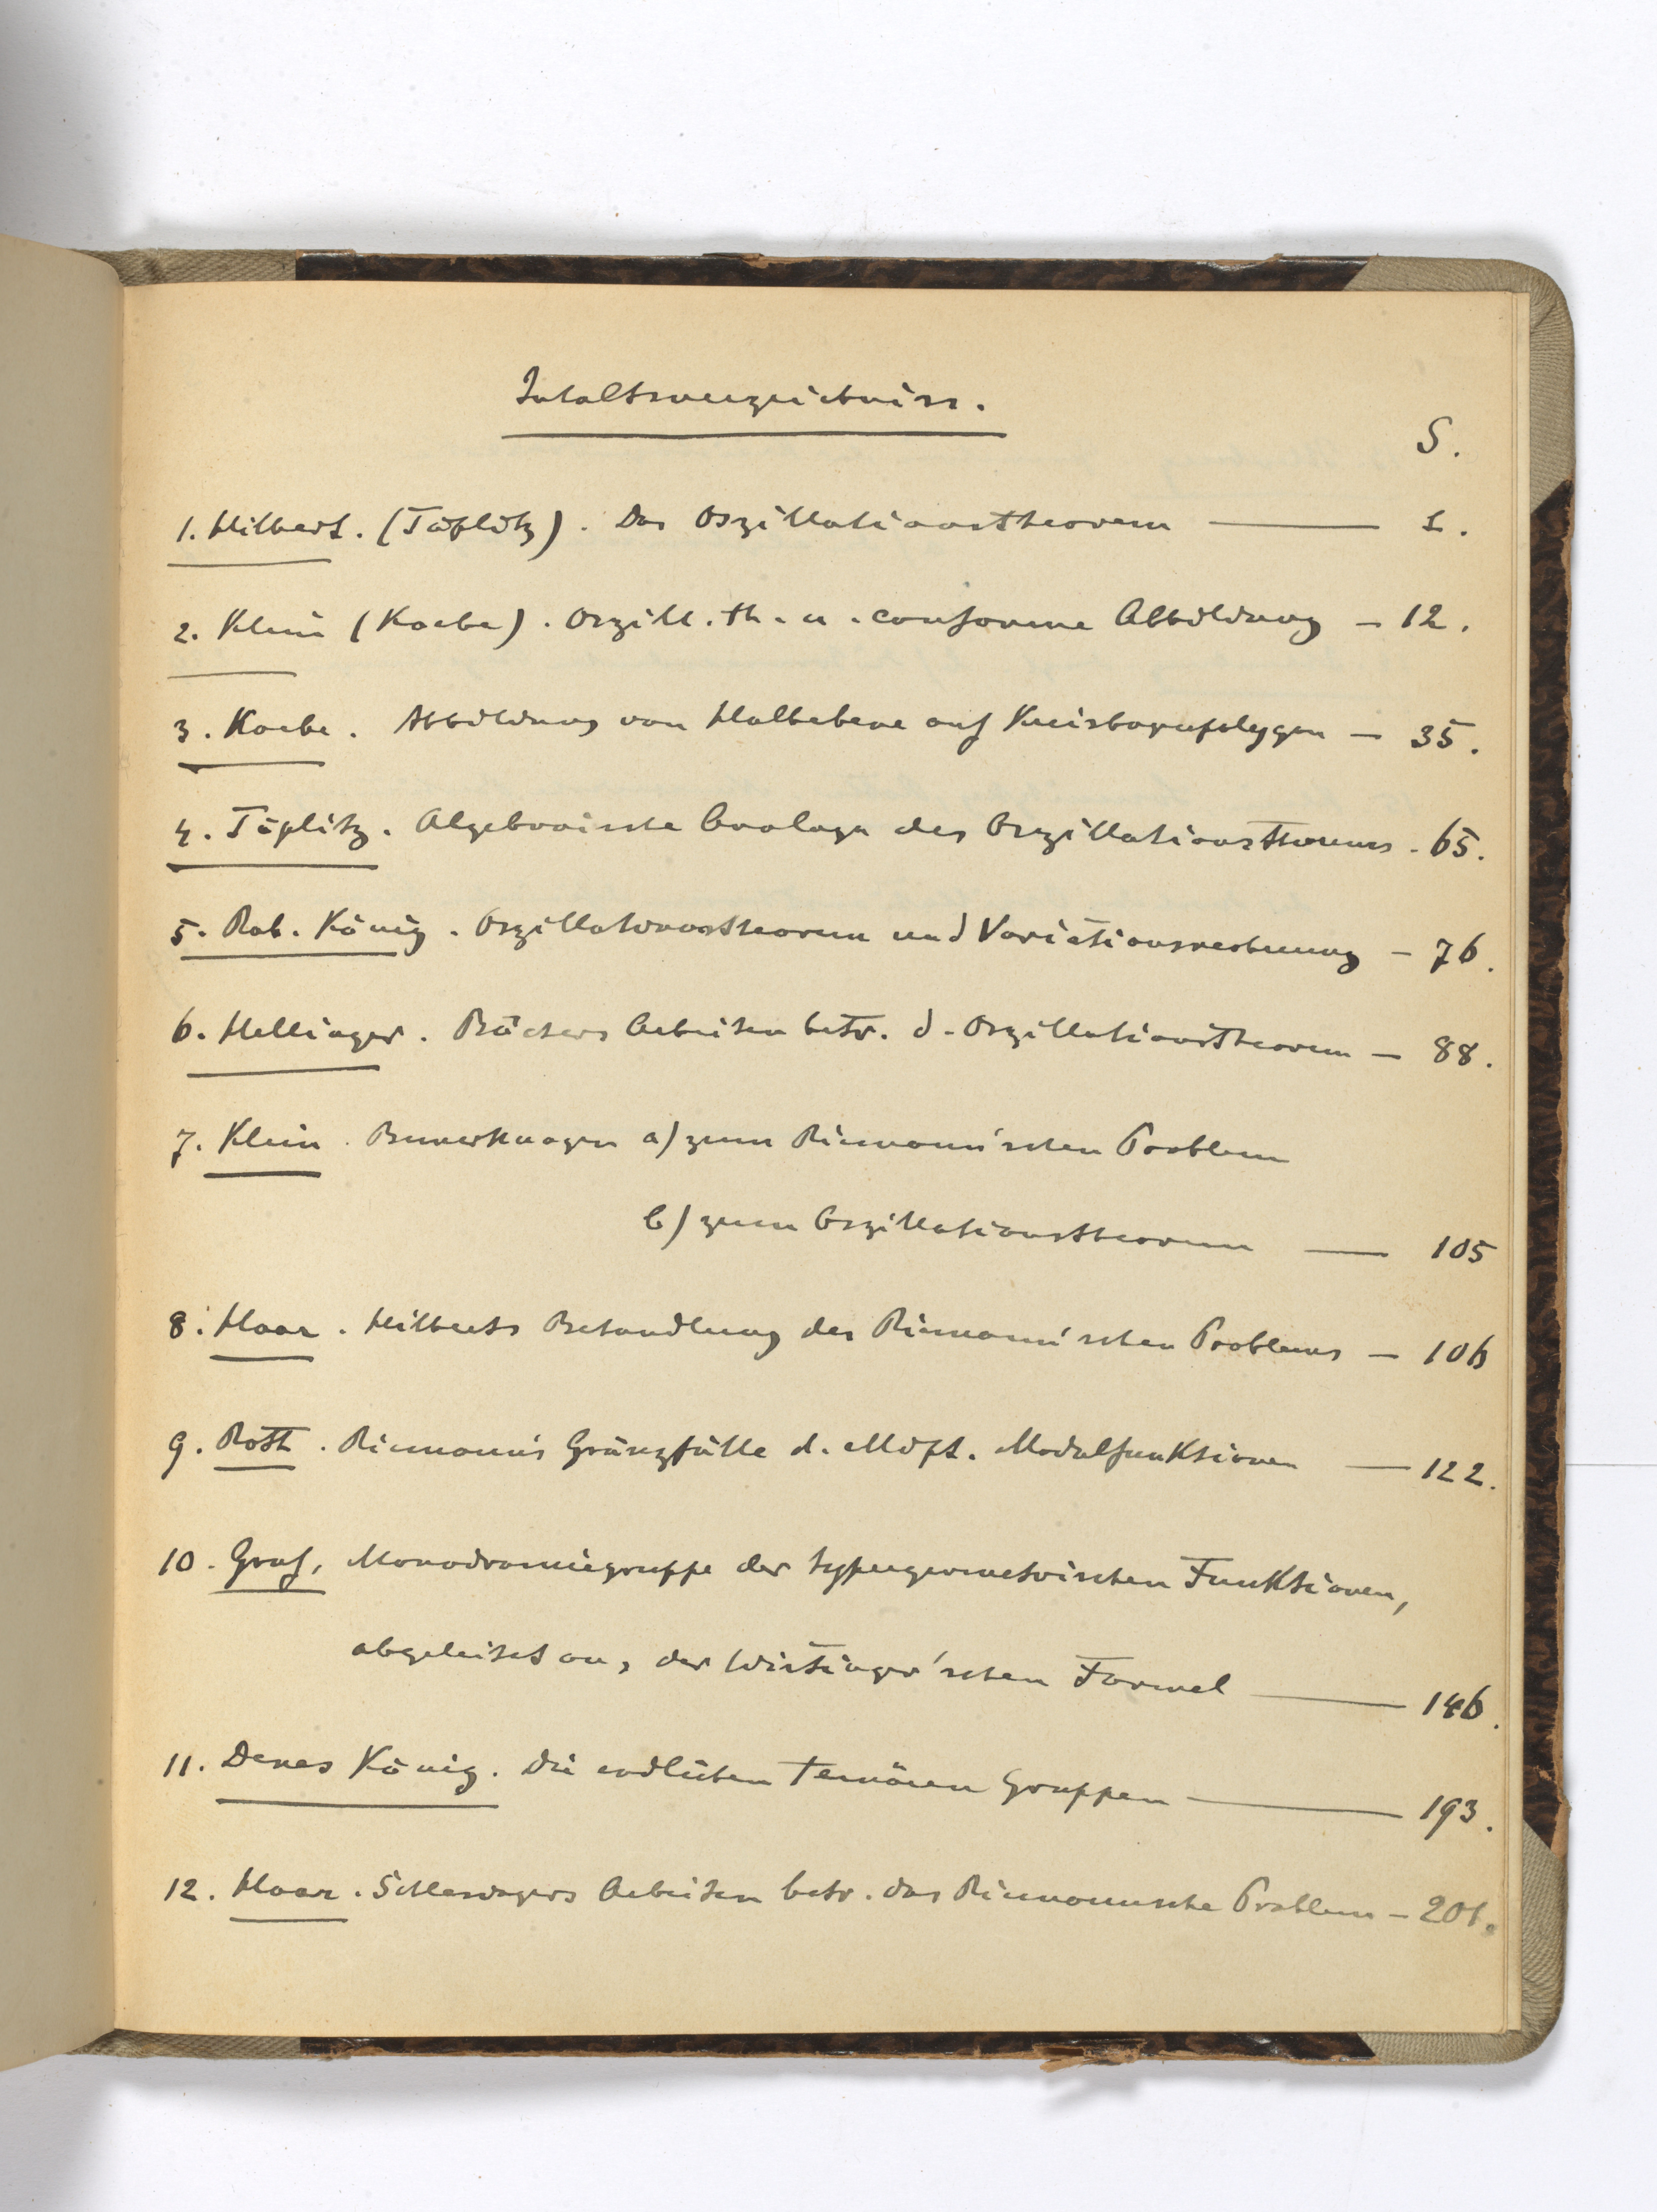 Inhaltsverzeichniss.
S.
1. Hilbert. (Töplitz). Das Oszillationstheorem — 1.
2. Klein (Koebe). Oszill. th. u. conforme Abbildung — 12.
3. Koebe. Abbildung von Halbebene auf Kreisbogenpolygon — 35.
4. Töplitz. Algebraische Analoga des Oszillationstheorems - 65.
5. Rob. König. Oszillationstheorem und Variationsrechnung — 76.
6. Hellinger. Bôchers Arbeiten betr. d. Oszillationstheorem — 88.
7. Klein. Bemerkungen a) zum Riemann'schen Problem
b) zum Oszillationstheorem — 105
8. Haar. Hilberts Behandlung des Riemann'schen Problems — 106
9. Roth. Riemann's Gränzfälle d. ellipt. Modulfunktionen — 122.
10. Graf, Monodromiegruppe der hypergeometrischen Funktionen,
abgeleitet aus der Wirtinger'schen Formel — 146.
11. Denes König. Die endlichen ternären Gruppen — 193.
12. Haar. Schlesingers Arbeiten betr. das Riemannsche Problem — 201.